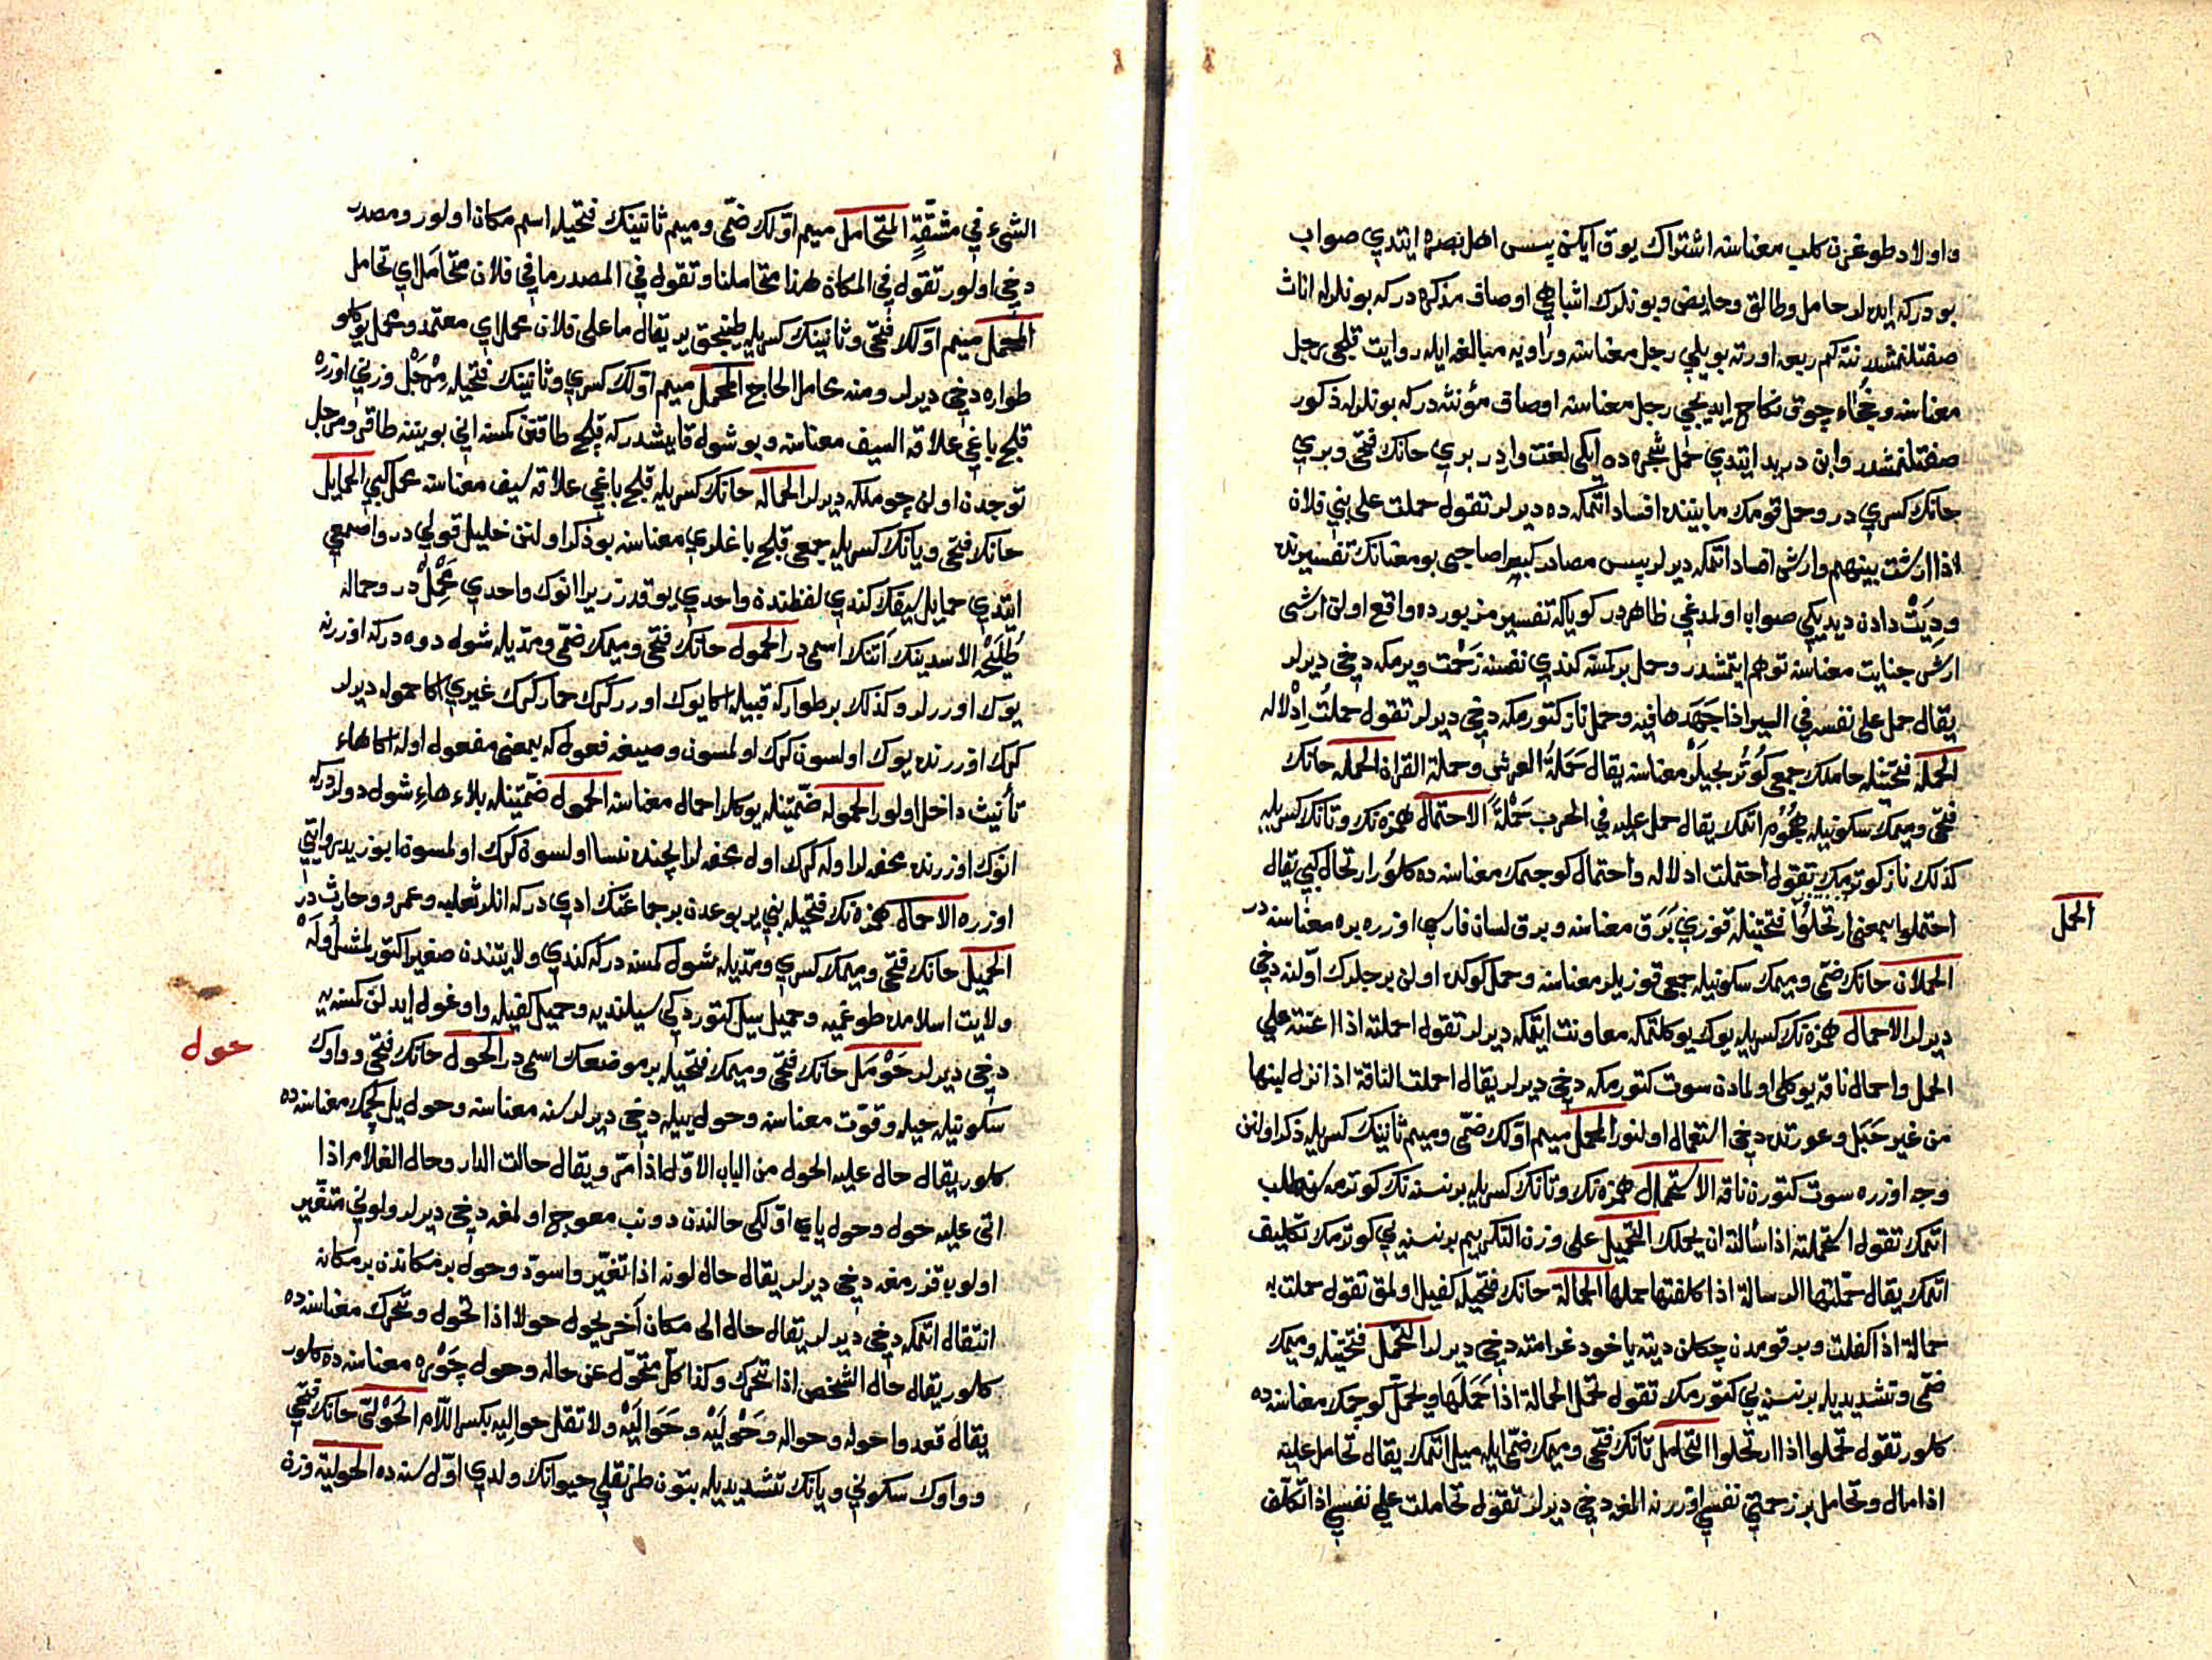 واولاد طوغرن كلب معناسنه اشتراك يوق ايكن پس اهل بصره ايتدي صواب
بودركه ايده لر حامل وطالق وحايض وبونلرك اشباهي اوصاف مذكره دركه بونلرله اناث
صفتلنمشدر نته كم ربعه اورته بويلي رجل معناسنه وراويه مبالغه ايله روايت قلجي رجل
معناسنه وخجأة چوق نكاح ايديجي رجل معناسنه اوصاف مؤنثه دركه بونلرله ذكور
صفتلنمشدر وابن دريد ايتدي حمل شجره ده ايكي لغت واردر بري حانك فتحى وبري
حانك كسري در وحمل قومك مابيننده افساد اتمكه ده ديرلر تقول حملت على بني فلان
اذا ارشت بينهم وارش افساد اتمكه ديرلر پس مصادر كبير صاحبي بو معنانك تفسيرنده
وديت دادن ديديكي صواب اولمدغي ظاهردر كويا كه تفسير مزبورده واقع اولن ارشى
ارش جنايت معناسنه توهم ايتمشدر وحمل بر كسنه كندي نفسنه زحمت ويرمكه دخى ديرلر
يقال حمل على نفسه في السير اذا جهدها فيه وحمل ناز كتورمكه دخى ديرلر تقول حملت ادلاله
الحملة فتحتيله حاملك جمعى كوتريجيلر معناسنه يقال حملة العرش وحملة القران الحمله حانك
فتحى وميمك سكونيله هجوم اتمك يقال حمل عليه في الحرب حملة الاحتمال همزه نك وتانك كسريله
كذلك ناز كوترمك تقول احتملت ادلاله واحتمال كوچمك معناسنه ده كلور ارتحال كبي يقال
احتملوا بمعنى ارتحلوا فتحتيله قوزي برق معناسنه وبرق لسان فارسي اوزره بره معناسنه در
الحمل
الحملان حانك ضمى وميمك سكونيله جمعى قوزيلر معناسنه وحمل كوكده اولن برجلرك اولنه دخى
ديرلر الاحمال همزه نك كسريله يوك يوكلتمكه معاونت ايتمكه ديرلر تقول احملته اذا اعنته على
الحمل واحمال ناقه يوكلى اولمادن سوت كتورمكه دخى ديرلر يقال احملت الناقة اذا نزل لبنها
من غير حبل وعورتده دخى استعمال اولنور المحمل ميم اولك ضمى وميم ثانينك كسريله ذكر اولنن
وجه اوزره سوت كتورن ناقه الاستحمال همزه نك وتانك كسريله بر نسنه نك كوترمه سن طلب
اتمك تقول استحملته اذا سألته ان يحملك التحميل على وزن التكريم بر نسنه يي كوترمك تكليف
اتمك يقال حملتها الرسالة اذا كلفتها حملها الحمالة حانك فتحيله كفيل اولمق تقول حملت به
حمالة اذا كفلت وبر قومدن چكلن ديته ياخود غرامته دخى ديرلر التحمل فتحتيله وميمك
ضمى وتشديديله بر نسنه يي كتورمك تقول تحمل الحمالة اذا حملها وتحمل كوچمك معناسنه ده
كلور تقول تحملوا اذا ارتحلوا التحامل تانك فتحى وميمك ضمى ايله ميل اتمك يقال تحامل عليه
اذا مال وتحامل بر زحمتي نفسي اوزرنه المغه دخى ديرلر تقول تحاملت على نفسي اذا تكلف
الشيء في مشقة المتحامل ميم اولك ضمى وميم ثانينك فتحيله اسم مكان اولور ومصدر
دخى اولور تقول في المكان هذا متحاملنا وتقول في المصدر ما في فلان متحامل اي تحامل
المحمل ميم اولك فتحى وثانينك كسريله طينجق ير يقال ما على فلان محمل اي معتمد ومحمل يوكلو
طواره دخى ديرلر ومنه محامل الحاج المحمل ميم اولك كسري وثانينك فتحيله مرجل وزني اوزره
قلج باغي علاقة السيف معناسنه وبو شوله قايشدر كه قلج طاقنن كمسنه اني بويننه طاقر ومرجل
توجدن اولن چوملكه ديرلر الحماله حانك كسريله قلج باغي علاقه سيف معناسنه محمل كبي الحمايل
حانك فتحى ويانك كسريله جمعى قلج باغلري معناسنه بو ذكر اولنن خليل قولي در واصمعي
ايتدي حمايل سيفك كندي لفظنده واحدي يوقدر زيرا انوك واحدي محمل در وحماله
طليحة الاسدينك اتنك اسمى در الحموله حانك فتحى وميمك ضمى ومديله شول دوه دركه اوزرنه
يوك اوررلر وكذلك بر طوار كه قبيله اكا يوك اورر كرك حمار كرك غيري اكا حموله ديرلر
كرك اوزرنده يوك اولسون كرك اولمسون وصيغه فعول كه بمعنى مفعول اوله اكا هاء
تأنيث داخل اولور الحموله ضمتيله يوكلر احمال معناسنه الحمول ضمتيله بلاء هاء شول دوه لردركه
انوك اوزرنده محفه لر اوله كرك اول محفه لر ايچنده نسا اولسون كرك اولمسون ابو زيد روايتي
اوزره الاحمال همزه نك فتحيله بني يربوعدن بر جماعتك ادي دركه انلر ثعلبه وعمرو وحارث در
الحميل حانك فتحى وميمك كسري ومديله شول كمسنه دركه كندي ولايتندن صغير اكتورلمش اوله
ولايت اسلامده طوغميه وحميل سيل كتوردكي سيلنديه وحميل كفيله واوغول ايدلنن كمسنه يه
دخى ديرلر حومل حانك فتحى وميمك فتحيله بر موضعك اسمى در الحول حانك فتحى وواوك
حول
سكونيله حيله وقوت معناسنه وحول ييله دخى ديرلر سنه معناسنه وحول يل كچمك معناسنه ده
كلور يقال حال عليه الحول من الباب الاول اذا مر ويقال حالت الدار وحال الغلام اذا
اتى عليه حول وحول ياي اولكى حالندن دونب معوج اولمغه دخى ديرلر ولوني متغير
اولوب قزرمغه دخى ديرلر يقال حال لونه اذا تغير واسود وحول بر مكاندن بر مكانه
انتقال اتمكه دخى ديرلر يقال حال الى مكان آخر يحول حولا اذا تحول وتحرك معناسنه ده
كلور يقال حال الشخص اذا تحرك وكذا كل متحول عن حاله وحول چوره معناسنه ده كلور
يقال قعدوا حوله وحواله وحوليه وحواليه ولا تقل حواليه بكسر اللام الحولى حانك فتحى
وواوك سكوني ويانك تشديديله بتون طرنقلي حيوانك ولدي اول سنه ده الحولية وزن